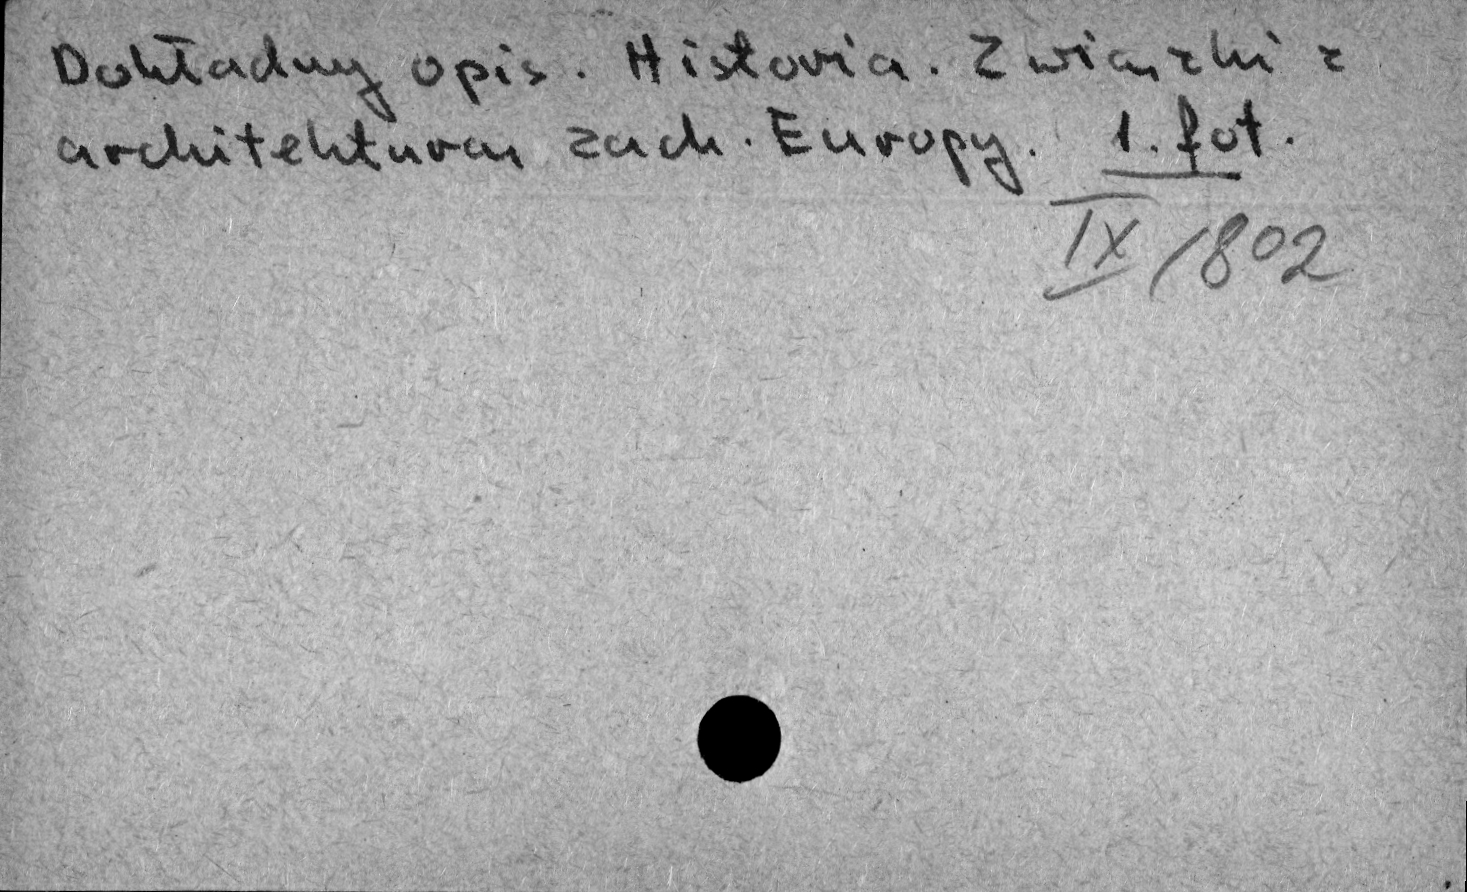 Dokładny opis. Historia. Związki z
architekturą zach. Europy. 1. fot.
IX/802